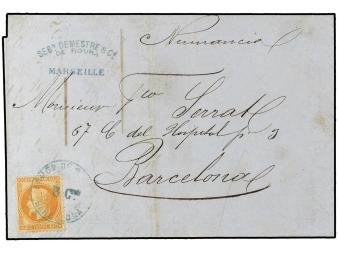 SEBN DEMESTRE & CE
DE ROURA
MARSEILLE
Numancia
Monsieur Fco Serrat
67 C del Hospital p. 3
Barcelona